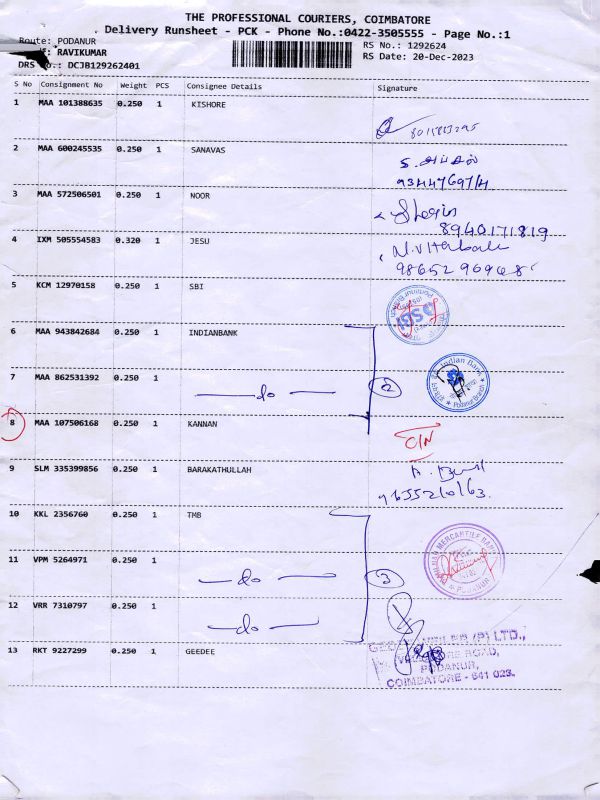 THE PROFESSIONAL COURIERS, COIMBATORE
Delivery Runsheet - PCK - Phone No.:0422-3505555 - Page No.:1
Route: PODANUR
RAVIKUMAR
DRS No.: DCJB129262401
RS No.: 1292624
RS Date: 20-Dec-2023
S No Consignment No Weight PCS Consignee Details Signature
1 MAA 101388635 0.250 1 KISHORE
2 MAA 600245535 0.250 1 SANAVAS
3 MAA 572506501 0.250 1 NOOR
8940171819
4 IXM 505554583 0.320 1 JESU
5 KCM 12970158 0.250 1 SBI
SBI
6 MAA 943842684 0.250 1 INDIANBANK
Indian Bank
Podanur Branch
7 MAA 862531392 0.250 1 do 2
8 MAA 107506168 0.250 1 KANNAN
9 SLM 335399856 0.250 1 BARAKATHULLAH
10 KKL 2356760 0.250 1 TMB
TAMILNAD MERCANTILE BANK
PODANUR
11 VPM 5264971 0.250 1 do 3
12 VRR 7310797 0.250 1 do
13 RKT 9227299 0.250 1 GEEDEE
(P) LTD.,
ROAD,
PODANUR,
COIMBATORE - 641 023.